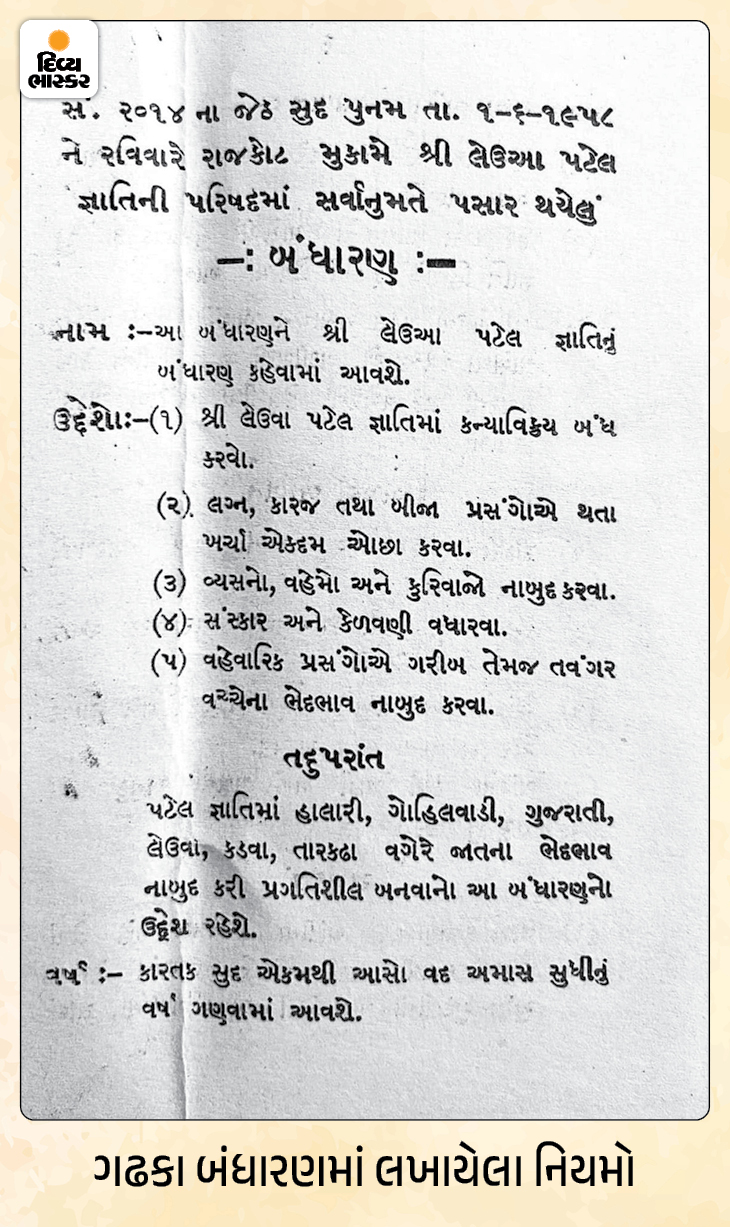 દિવ્ય
ભાસ્કર
સં. ૨૦૧૪ ના જેઠ સુદ પુનમ તા. ૧-૬-૧૯૫૮
ને રવિવારે રાજકોટ મુકામે શ્રી લેઉઆ પટેલ
જ્ઞાતિની પરિષદમાં સર્વાનુમતે પસાર થયેલું
—: બંધારણ :—
નામ :–આ બંધારણને શ્રી લેઉઆ પટેલ જ્ઞાતિનું
બંધારણ કહેવામાં આવશે.
ઉદ્દેશોઃ–(૧) શ્રી લેઉવા પટેલ જ્ઞાતિમાં કન્યાવિક્રય બંધ
કરવો.
(૨) લગ્ન, કારજ તથા બીજા પ્રસંગોએ થતા
ખર્ચા એકદમ ઓછા કરવા.
(૩) વ્યસનો, વહેમો અને કુરિવાજો નાબુદ કરવા.
(૪) સંસ્કાર અને કેળવણી વધારવા.
(૫) વહેવારિક પ્રસંગોએ ગરીબ તેમજ તવંગર
વચ્ચેના ભેદભાવ નાબુદ કરવા.
તદુપરાંત
પટેલ જ્ઞાતિમાં હાલારી, ગોહિલવાડી, ગુજરાતી,
લેઉવા, કડવા, તારકઢા વગેરે જાતના ભેદભાવ
નાબુદ કરી પ્રગતિશીલ બનવાનો આ બંધારણનો
ઉદ્દેશ રહેશે.
વર્ષ :– કારતક સુદ એકમથી આસો વદ અમાસ સુધીનું
વર્ષ ગણવામાં આવશે.
ગઢકા બંધારણમાં લખાયેલા નિયમો